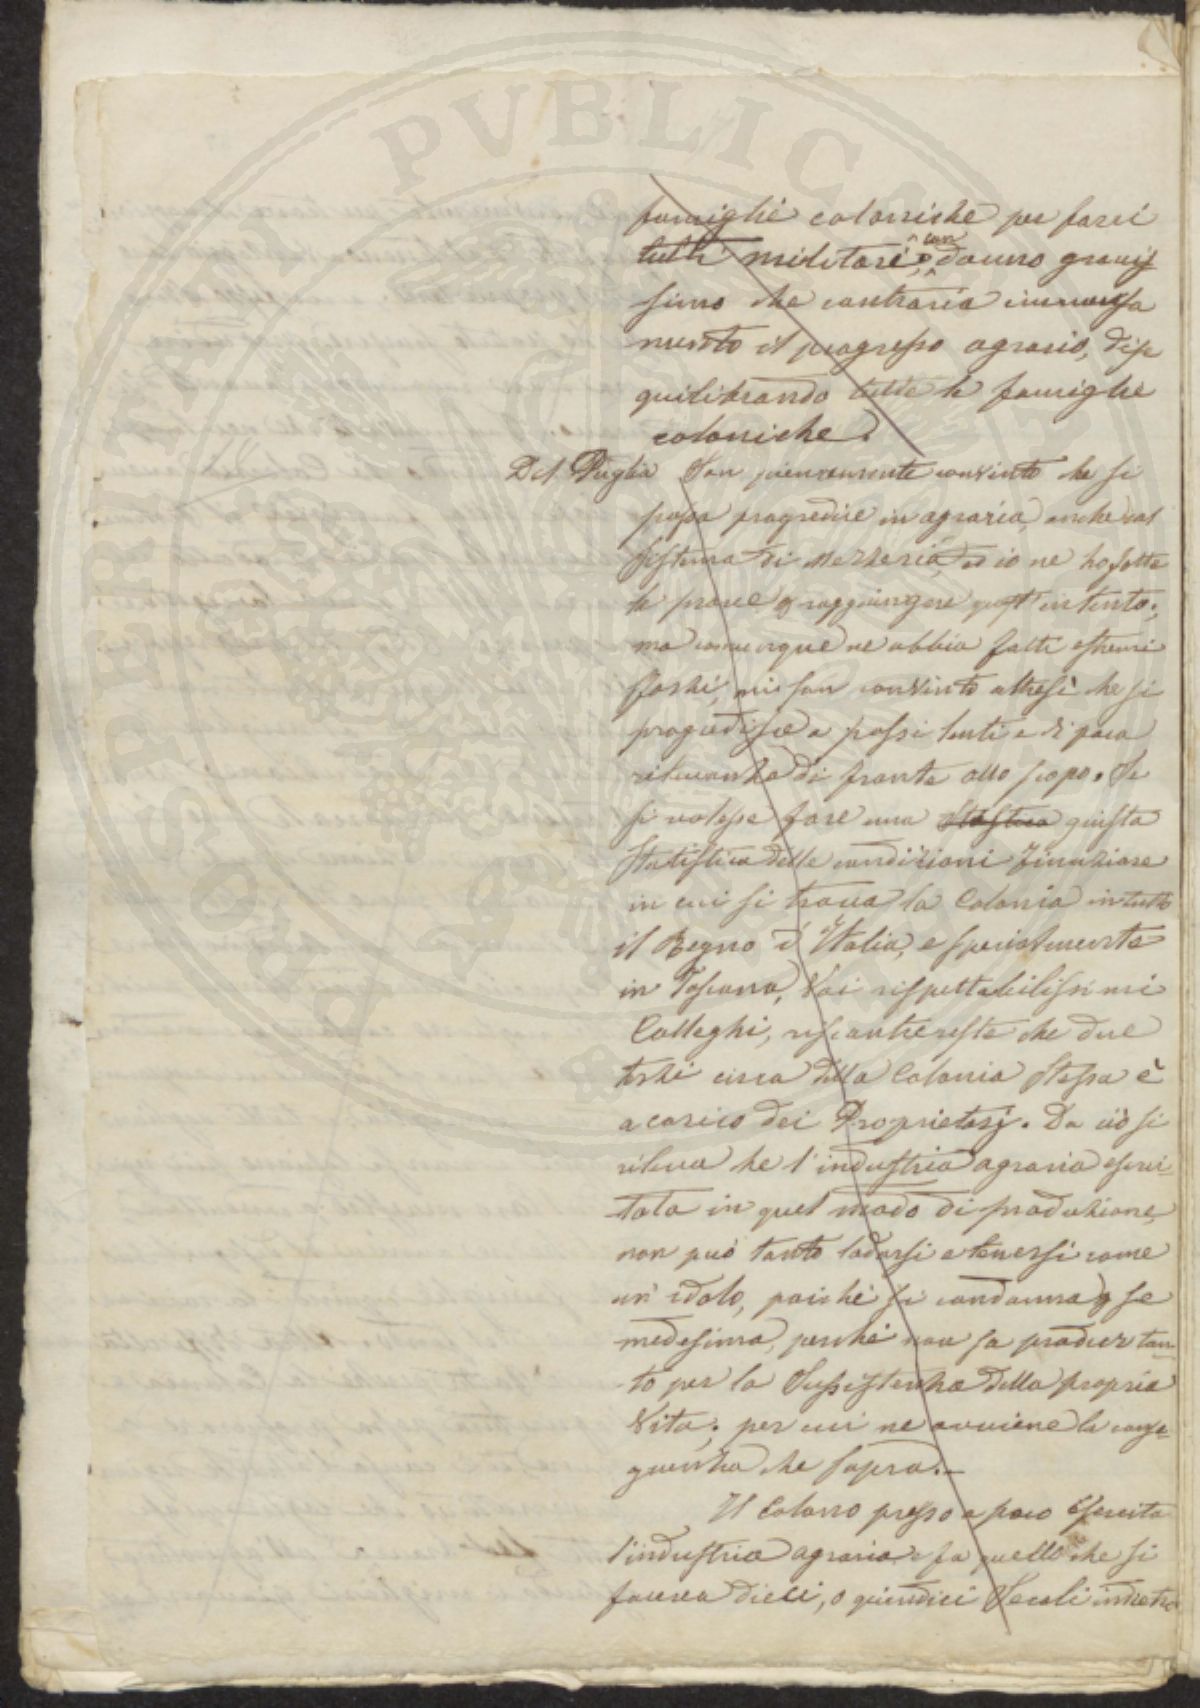 famiglie coloniche per farci
tutti militari, con danno gravis
simo che contraria immensa
mento il progresso agrario, dise
quilibrando tutte le famiglie
coloniche.
Del Puglia Son pienamente convinto che si
possa progredire in agraria, anche col
sistema di Mezzeria, ed io ne ho fatte
le prove raggiungere quest'intento;
ma comunque ne abbia fatti estremi
sforzi, mi son convinto altresì che si
progredisce a passi lenti e di poca
rilevanza di fronte allo scopo. Se
si volesse fare una giusta
Statistica delle condizioni finanziare
in cui si trova la Colonia in tutto
il Regno d'Italia, e specialmente
in Toscana, Voi rispettabilissimi
Colleghi, riscontrereste che due
terzi circa della Colonia stessa è
a carico dei Proprietarj. Da ciò si
rileva che l'industria agraria eserci-
tata in quel modo di produzione,
non può tanto lodarsi e tenersi come
un idolo, poichè si condanna se
medesima, perchè non fa produr tan-
to per la Sussistenza della propria
Vita; per cui ne avviene la conse-
guenza che sopra.
Il Colono presso a poco esercita
l'industria agraria e fa quello che si
faceva dieci, o quindici Secoli indietro
POSPERITATI PUBLICAE